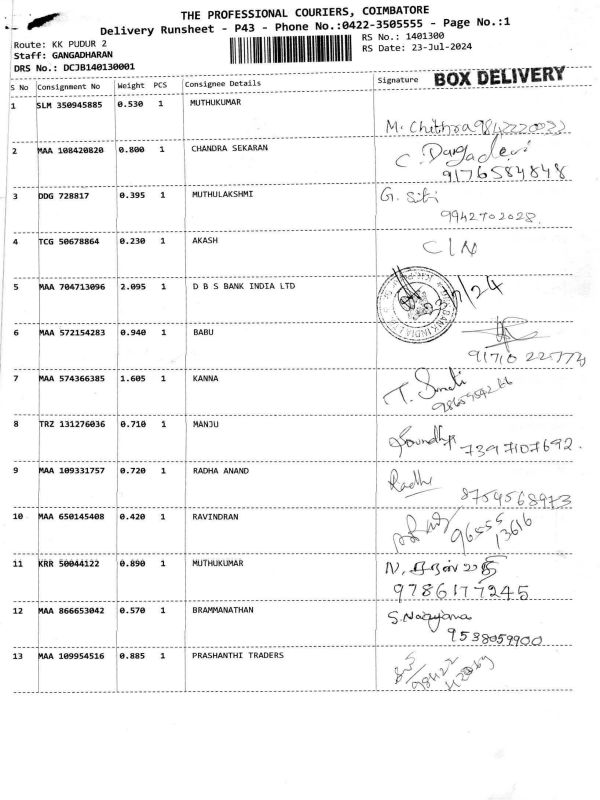 THE PROFESSIONAL COURIERS, COIMBATORE
Delivery Runsheet - P43 - Phone No.:0422-3505555 - Page No.:1
Route: KK PUDUR 2
RS No.: 1401300
Staff: GANGADHARAN
RS Date: 23-Jul-2024
DRS No.: DCJB140130001
S No Consignment No Weight PCS Consignee Details Signature BOX DELIVERY
1 SLM 350945885 0.530 1 MUTHUKUMAR
M. Chithra
2 MAA 108420820 0.800 1 CHANDRA SEKARAN
C. Durgadevi
9176584848
3 DDG 728817 0.395 1 MUTHULAKSHMI G.
9942702028
4 TCG 50678864 0.230 1 AKASH
5 MAA 704713096 2.095 1 D B S BANK INDIA LTD
BANK INDIA
6 MAA 572154283 0.940 1 BABU
91710 225774
7 MAA 574366385 1.605 1 KANNA
T.
8 TRZ 131276036 0.710 1 MANJU
7397107692.
9 MAA 109331757 0.720 1 RADHA ANAND
Radha
8754568973
10 MAA 650145408 0.420 1 RAVINDRAN
96555
13616
11 KRR 50044122 0.890 1 MUTHUKUMAR
N.
9786177245
12 MAA 866653042 0.570 1 BRAMMANATHAN
S. Narayana
9538059900
13 MAA 109954516 0.885 1 PRASHANTHI TRADERS
98422